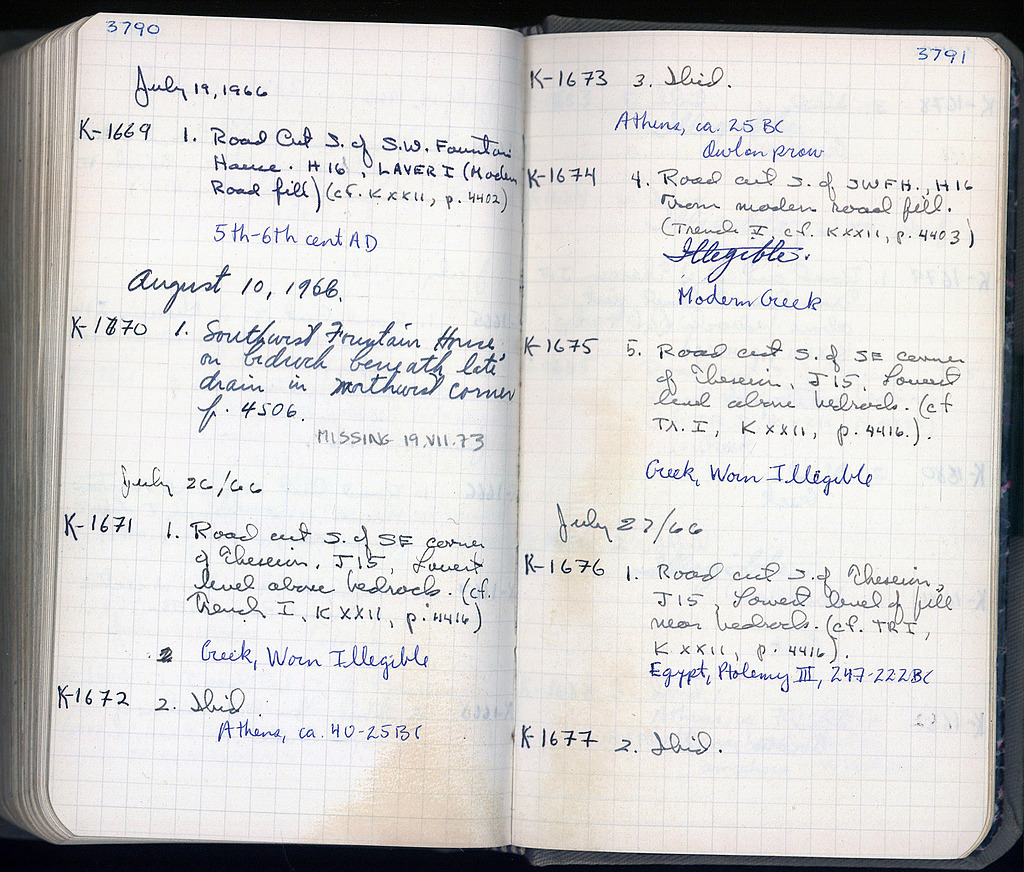 3790
July 19, 1966
K-1669 1. Road Cut S. of S.W. Fountain
House. H 16, LAYER I (Modern
Road fill) (cf. K XXII, p. 4402)
5th-6th cent AD
August 10, 1966.
K-1670 1. Southwest Fountain House
on bedrock beneath late
drain in northwest corner
p. 4506.
MISSING 19.VII.73
July 26/66
K-1671 1. Road cut S. of SE corner
of Theseion, J 15, Lowest
level above bedrock. (cf.
Trench I, K XXII, p. 4416)
Greek, Worn Illegible
K-1672 2. Ibid.
Athens, ca. 40-25 BC
3791
K-1673 3. Ibid.
Athens, ca. 25 BC
Owl on prow
K-1674 4. Road cut S. of SWFH., H 16
From modern road fill.
(Trench I, cf. K XXII, p. 4403)
Illegible.
Modern Greek
K-1675 5. Road cut S. of SE corner
of Theseion, J 15, Lowest
level above bedrock. (cf
Tr. I, K XXII, p. 4416.).
Greek, Worn Illegible
July 27/66
K-1676 1. Road cut S. of Theseion,
J 15, Lowest level of fill
near bedrock. (cf. TR I,
K XXII, p. 4416).
Egypt, Ptolemy III, 247-222 BC
K-1677 2. Ibid.